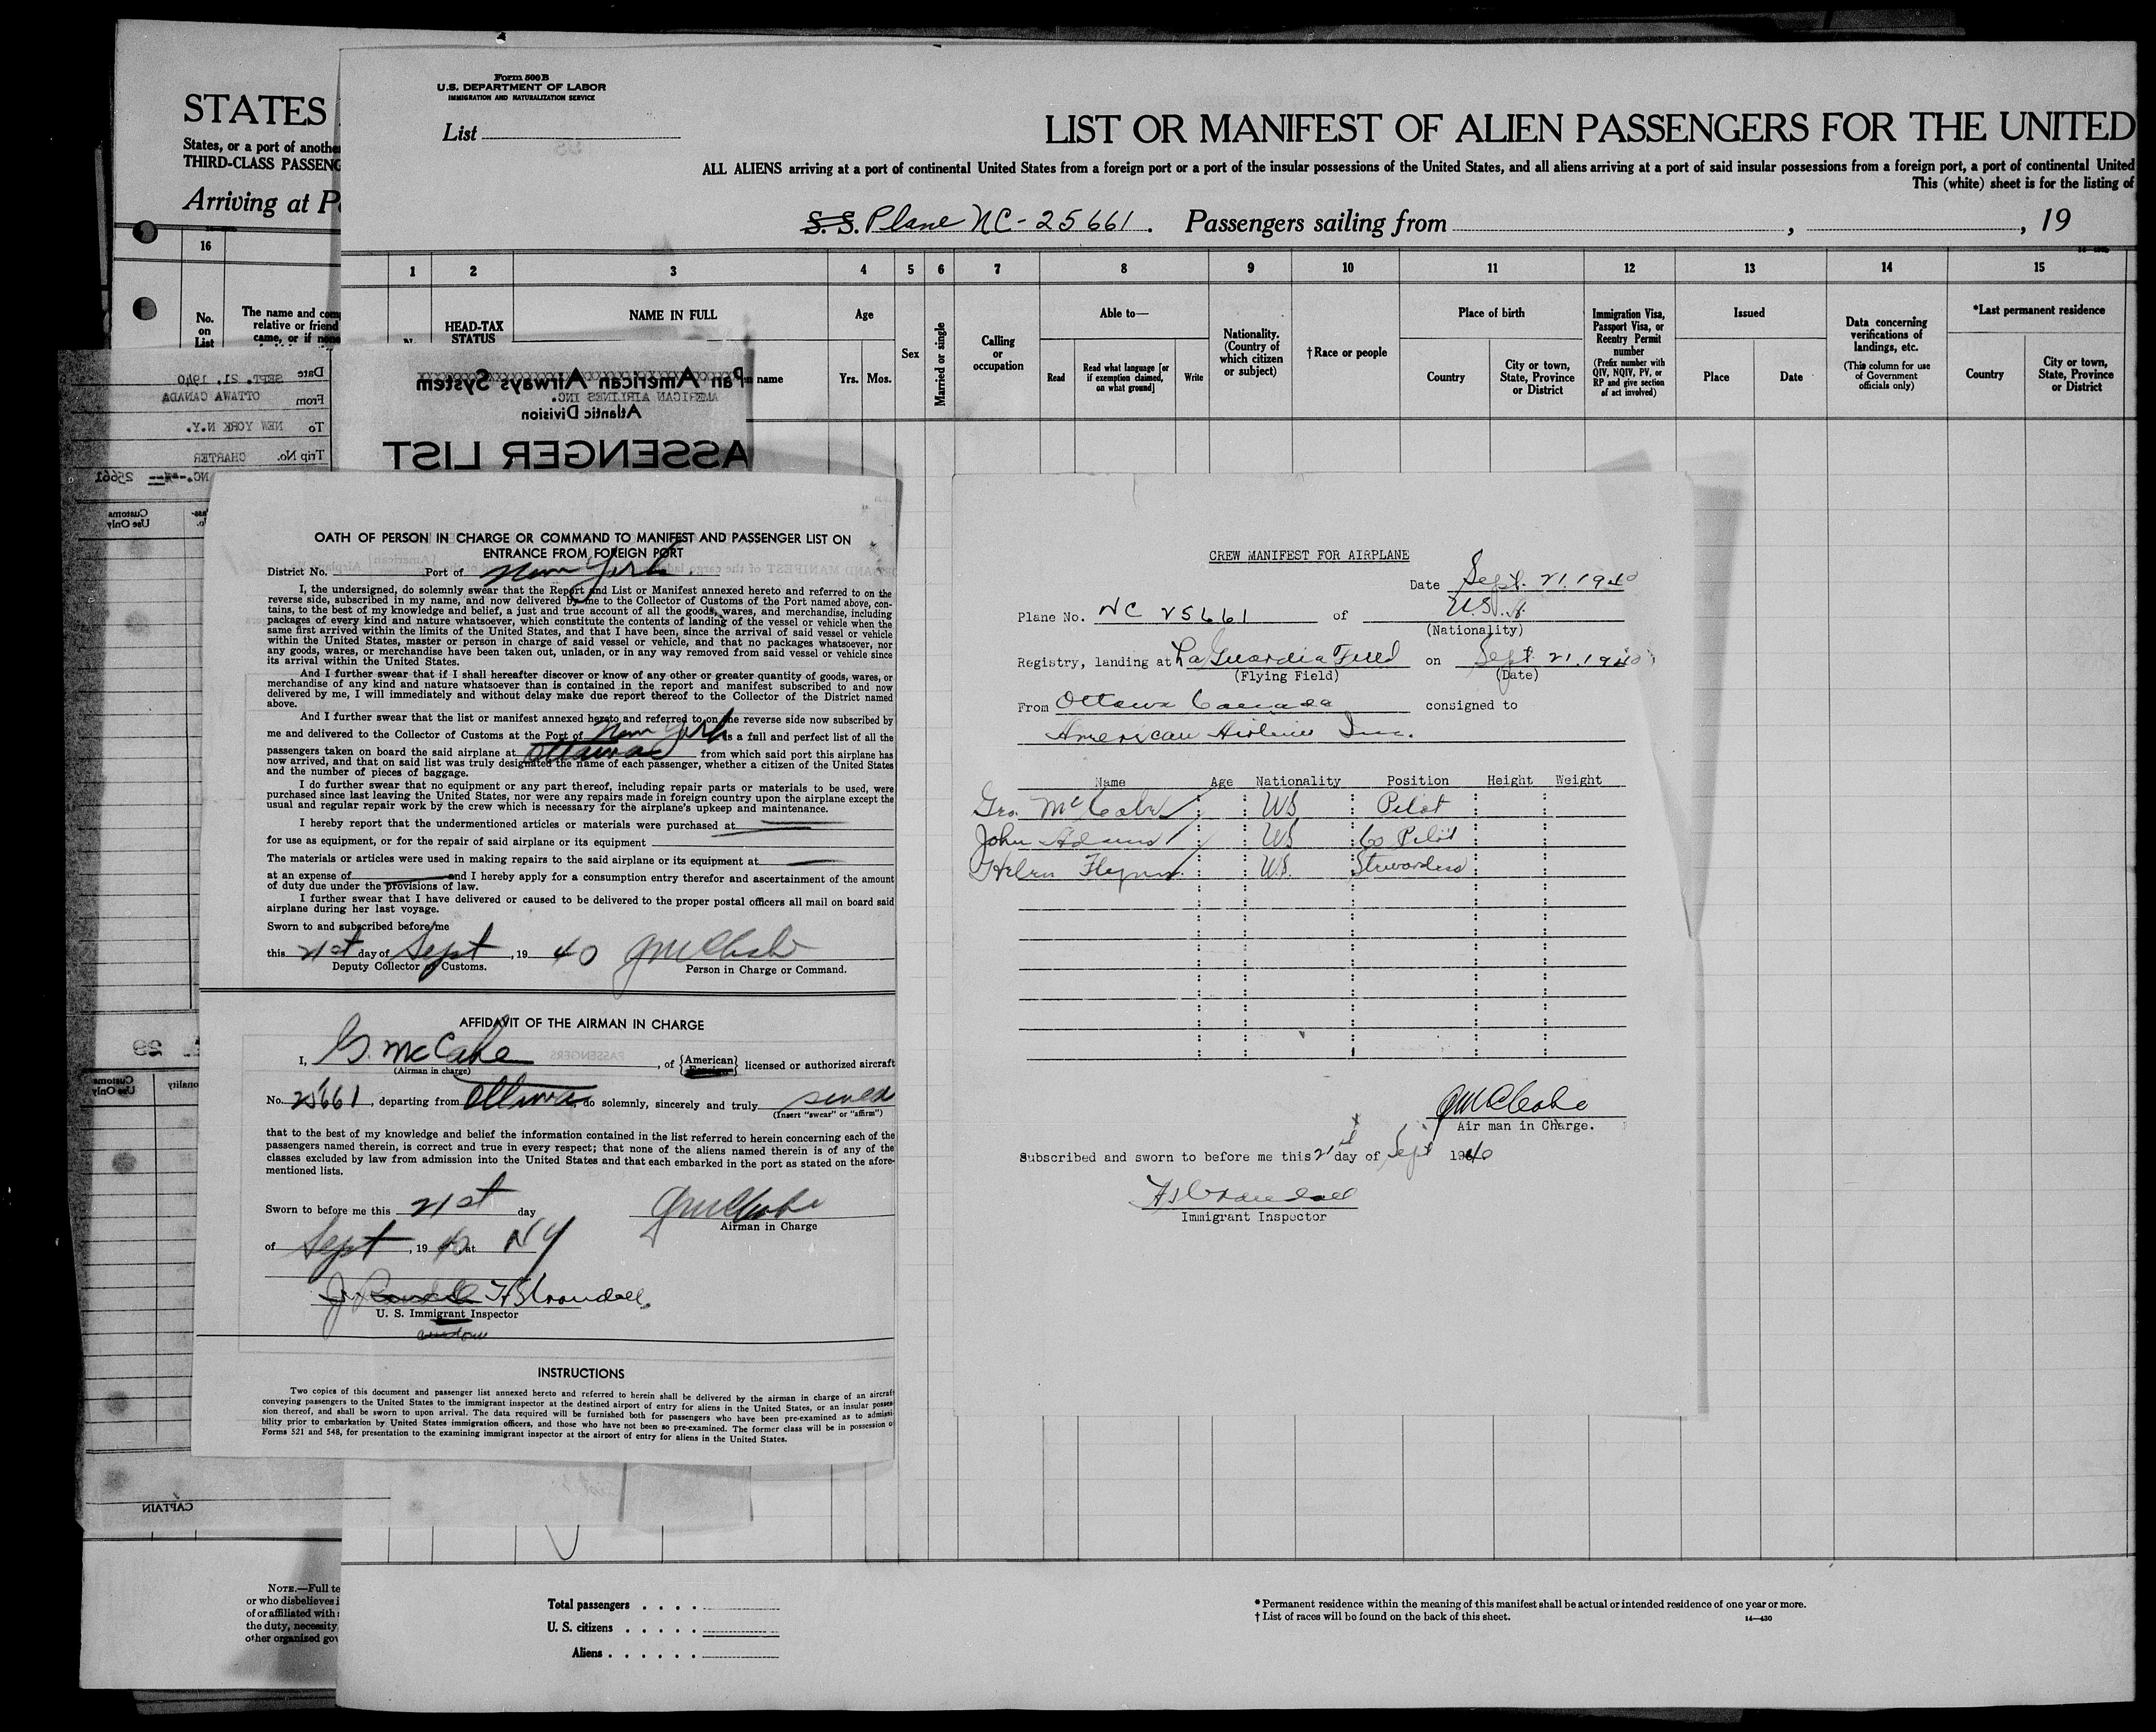 STATES
States, or a part of anothe
THIRD-CLASS PASSENG
Arriving at P
16
No.
on
List
The name and com
relative or friend
came, or if none
Form 500 B
U.S. DEPARTMENT OF LABOR
IMMIGRATION AND NATURALIZATION SERVICE
List
LIST OR MANIFEST OF ALIEN PASSENGERS FOR THE UNITED
ALL ALIENS arriving at a port of continental United States from a foreign port or a part of the insular possessions of the United States, and all aliens arriving at a port of said insular possessions from a foreign port, a port of continental United
This (white) sheet is for the listing of
S. S. Plane NC-25661. Passengers sailing from , , 19
1 2 3 4 5 6 7 8 9 10 11 12 13 14 15
HEAD-TAX
STATUS
NAME IN FULL
n name
Age
Yrs. Mos.
Sex
Married or single
Calling
or
occupation
Able to—
Read
Read what language [or
if exemption claimed,
on what ground]
Write
Nationality.
(Country of
which citizen
or subject)
†Race or people
Place of birth
Country
City or town,
State, Province
or District
Immigration Visa,
Passport Visa, or
Reentry Permit
number
(Prefix number with
QIV, NQIV, PV, or
RP and give section
of act involved)
Issued
Place
Date
Data concerning
verifications of
landings, etc.
(This column for use
of Government
officials only)
*Last permanent residence
Country
City or town,
State, Province
or District
Date SEPT. 21. 1940
From OTTAWA CANADA
To NEW YORK N.Y.
Trip No. CHARTER
NC. 25661
Customs
Use Only
Pan American Airways System
AMERICAN AIRLINES INC.
Atlantic Division
ASSENGER LIST
29
Customs
Use Only
CAPTAIN
OATH OF PERSON IN CHARGE OR COMMAND TO MANIFEST AND PASSENGER LIST ON
ENTRANCE FROM FOREIGN PORT
District No. Port of New York.
I, the undersigned, do solemnly swear that the Report and List or Manifest annexed hereto and referred to on the
reverse side, subscribed in my name, and now delivered by me to the Collector of Customs of the Port named above, con-
tains, to the best of my knowledge and belief, a just and true account of all the goods, wares, and merchandise, including
packages of every kind and nature whatsoever, which constitute the contents of landing of the vessel or vehicle when the
same first arrived within the limits of the United States, and that I have been, since the arrival of said vessel or vehicle
within the United States, master or person in charge of said vessel or vehicle, and that no packages whatsoever, nor
any goods, wares, or merchandise have been taken out, unladen, or in any way removed from said vessel or vehicle since
its arrival within the United States.
And I further swear that if I shall hereafter discover or know of any other or greater quantity of goods, wares, or
merchandise of any kind and nature whatsoever than is contained in the report and manifest subscribed to and now
delivered by me, I will immediately and without delay make due report thereof to the Collector of the District named
above.
And I further swear that the list or manifest annexed hereto and referred to on the reverse side now subscribed by
me and delivered to the Collector of Customs at the Port of New York is a full and perfect list of all the
passengers taken on board the said airplane at Ottawa from which said port this airplane has
now arrived, and that on said list was truly designated the name of each passenger, whether a citizen of the United States
and the number of pieces of baggage.
I do further swear that no equipment or any part thereof, including repair parts or materials to be used, were
purchased since last leaving the United States, nor were any repairs made in foreign country upon the airplane except the
usual and regular repair work by the crew which is necessary for the airplane's upkeep and maintenance.
I hereby report that the undermentioned articles or materials were purchased at
for use as equipment, or for the repair of said airplane or its equipment
The materials or articles were used in making repairs to the said airplane or its equipment at
at an expense of and I hereby apply for a consumption entry therefor and ascertainment of the amount
of duty due under the provisions of law.
I further swear that I have delivered or caused to be delivered to the proper postal officers all mail on board said
airplane during her last voyage.
Sworn to and subscribed before me
this 21st day of Sept, 19 40 GMcCabe
Deputy Collector of Customs. Person in Charge or Command.
AFFIDAVIT OF THE AIRMAN IN CHARGE
I, G. McCabe, of {American Foreign} licensed or authorized aircraft
(Airman in charge)
No. 25661, departing from Ottawa do solemnly, sincerely and truly
(Insert "swear" or "affirm")
that to the best of my knowledge and belief the information contained in the list referred to herein concerning each of the
passengers named therein, is correct and true in every respect; that none of the aliens named therein is of any of the
classes excluded by law from admission into the United States and that each embarked in the port as stated on the afore-
mentioned lists.
Sworn before me this 21st day GMcCabe
Airman in Charge
of Sept, 19 40 at NY
HSCrandall.
U. S. Immigrant Inspector
INSTRUCTIONS
Two copies of this document and passenger list annexed hereto and referred to herein shall be delivered by the airman in charge of an aircraft
conveying passengers to the United States to the immigrant inspector at the destined airport of entry for aliens in the United States, or an insular posses-
sion thereof, and shall be sworn to upon arrival. The data required will be furnished both for passengers who have been pre-examined as to admissi-
bility prior to embarkation by United States immigration officers, and those who have not been so pre-examined. The former class will be in possession o
Forms 521 and 548, for presentation to the examining immigrant inspector at the airport of entry for aliens in the United States.
CREW MANIFEST FOR AIRPLANE
Date Sept. 21. 1940
Plane No. NC 25661 of U.S.A.
(Nationality)
Registry, landing at La Guardia Field on Sept 21. 1940
(Flying Field) (Date)
From Ottawa Canada consigned to
American Airlines Inc.
Name Age Nationality Position Height Weight
Geo. McCabe US Pilot
John Adams US Co Pilot
Helen Flynn U.S. Stewardess
GMcCabe
Air man in Charge.
Subscribed and sworn to before me this 21st day of Sept 1940
HSCrandall
Immigrant Inspector
NOTE.—Full te
or who disbelieves i
of or affiliated with
the duty, necessity
other organized gov
Total passengers . . . .
U. S. citizens . . . . .
Aliens . . . . . .
* Permanent residence within the meaning of this manifest shall be actual or intended residence of one year or more.
† List of races will be found on the back of this sheet. 14—430